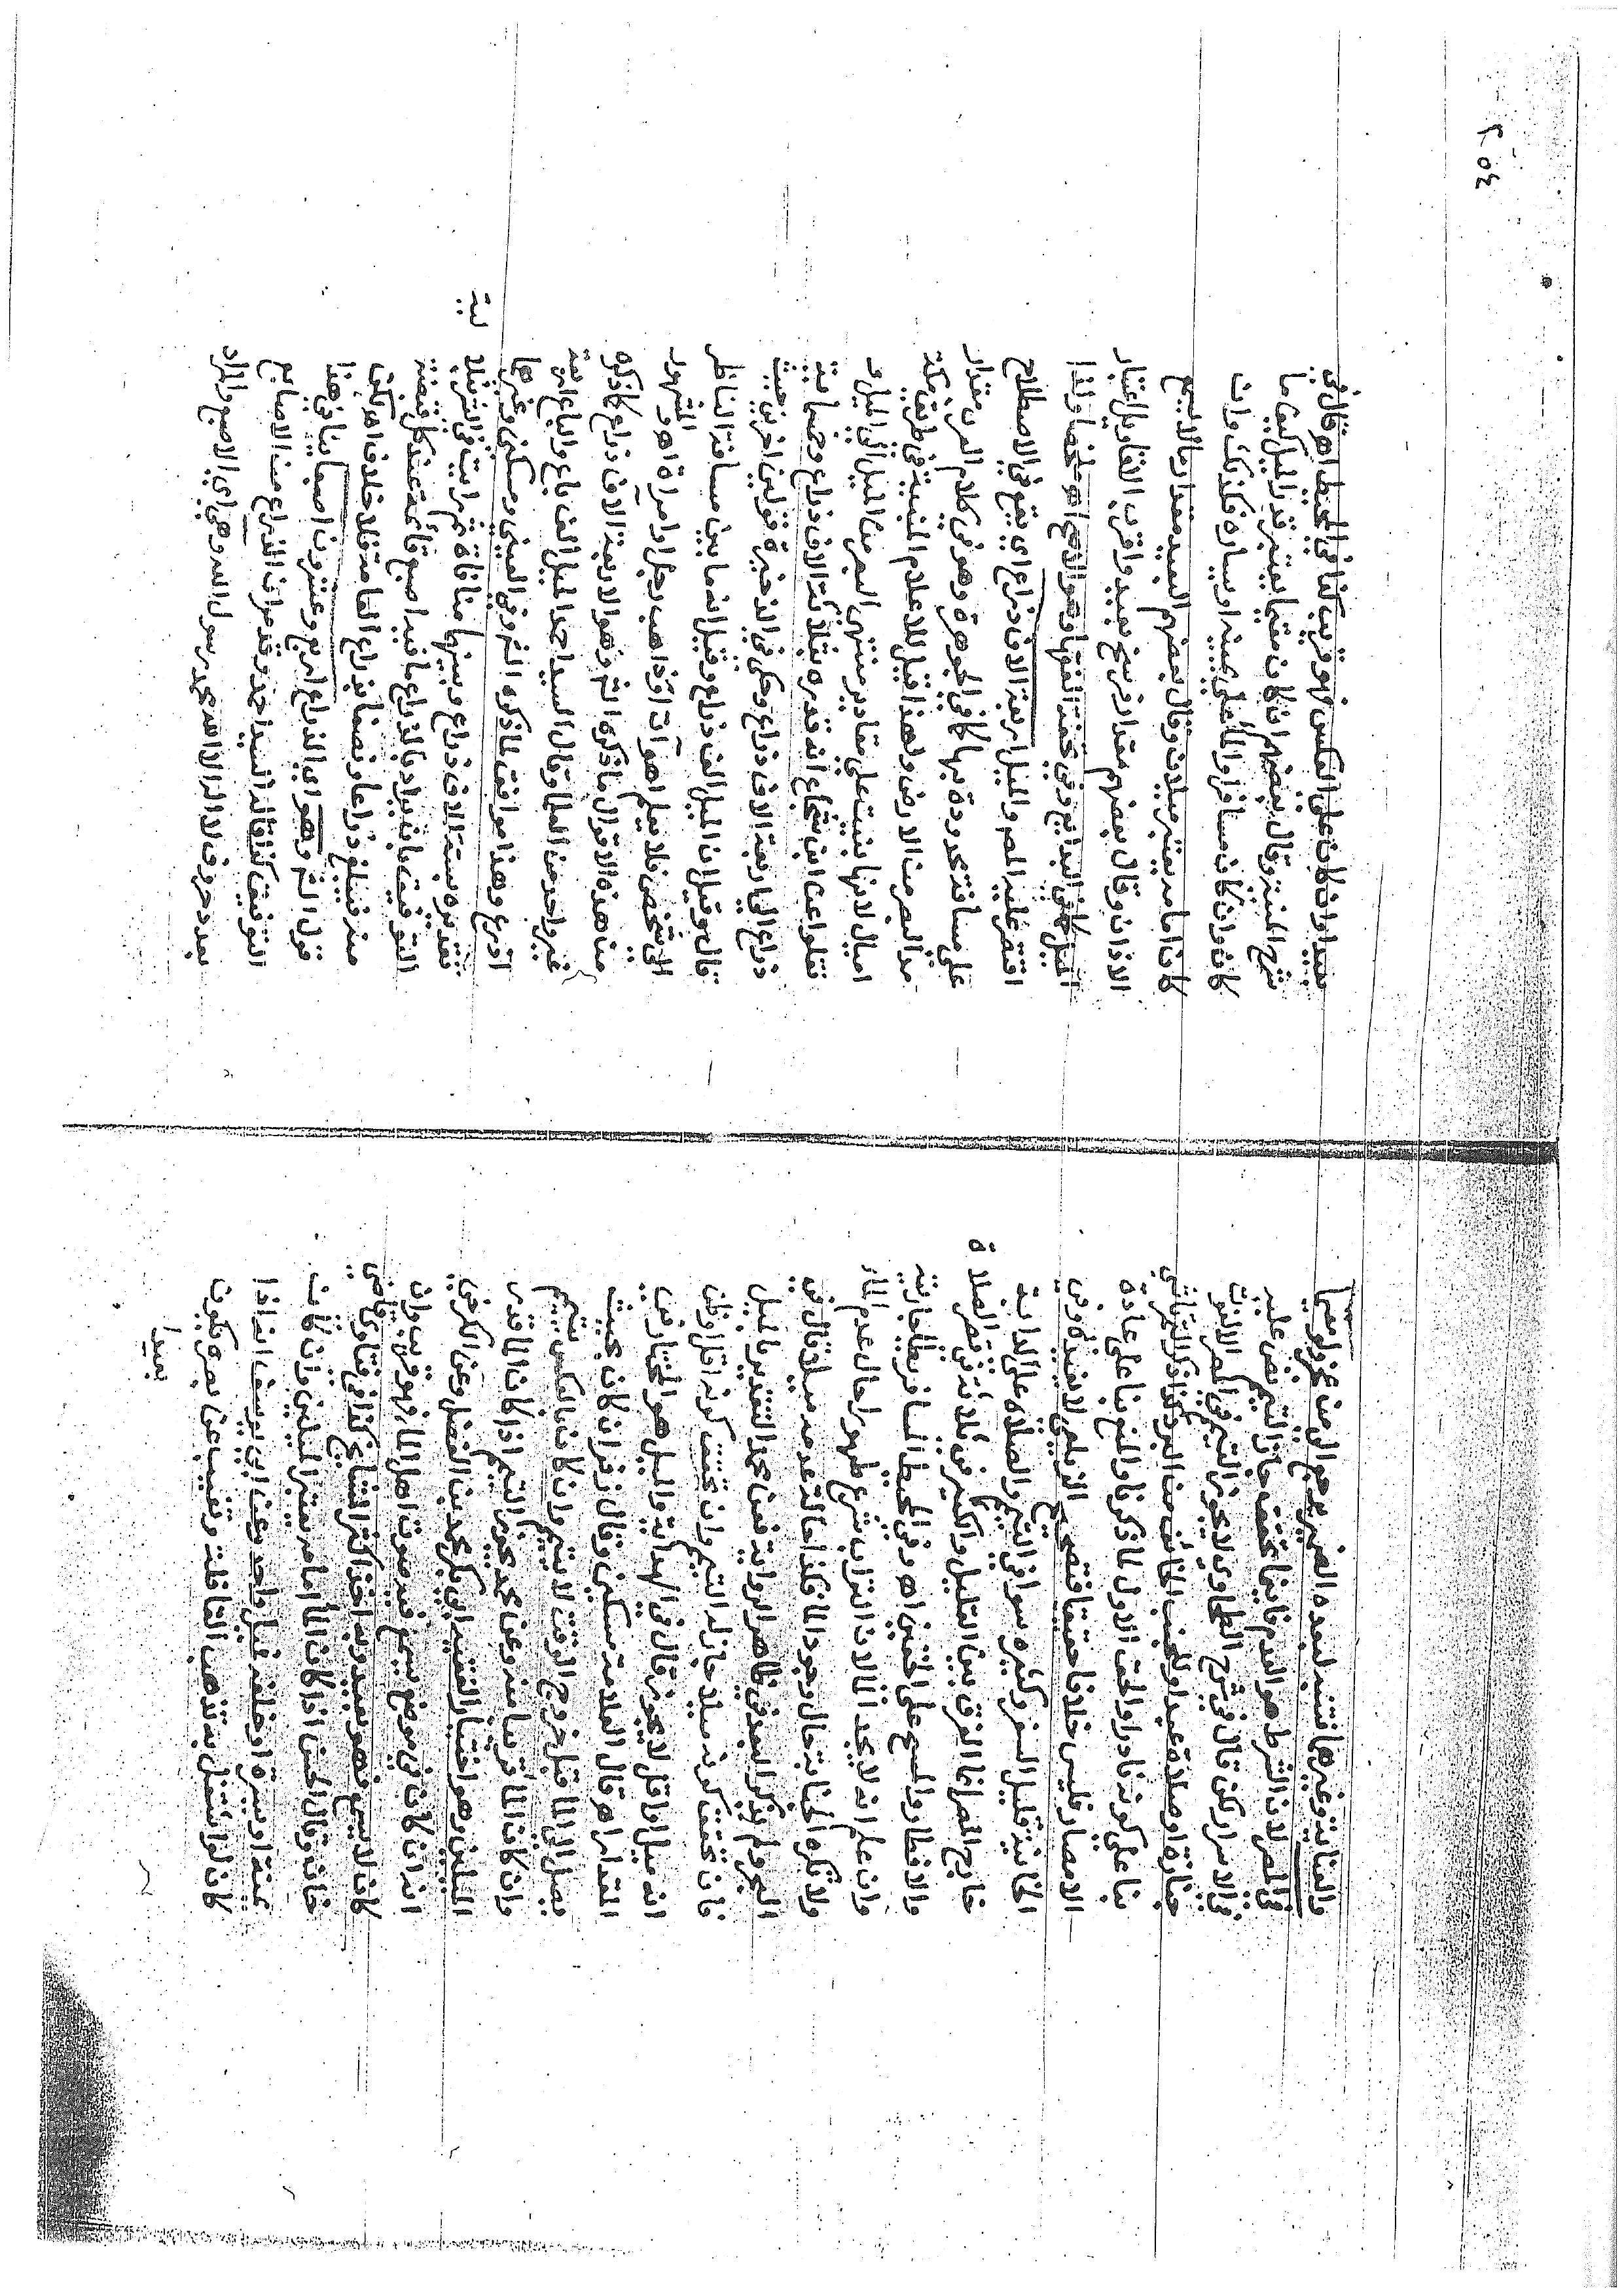 والعناية وغيرها فتنبه لبعده الضمير يرجع الى من عجز ولو مقيما
في المصر لان الشرط هو العدم فاينما تحقق جاز التيمم نص عليه
في الاسرار لكن قال في شرح الطحاوي لا يجوز التيمم في المصر الا لخوف فوت
جنازة او صلاة عيد او للجنب الخائف من البرد وكذا ذكر التمرتاشي
بنا على كونه نادرا والحق الاول لما ذكرنا والمنع بنا على عادة
الامصار فليس خلافا حقيقيا فتصحيح الزيلعي لا يفيده وفي
الخانية قليل السفر وكثيره سوا في التيمم والصلاة على الدابة
خارج المصر انما الفرق بين القليل والكثير في ثلاثة في قصر الصلاة
والافطار والمسح على الخفين اه وفي المحيط المسافر يطا جاريته
وان علم انه لا يجد الماء لان التراب شرع طهورا حال عدم الماء
ولا تكره الجنابة حال وجود الماء فكذا حال عدمه ميلا وقال في
البحر ولم يذكر البعد في ظاهر الرواية فعن محمد التقدير بالميل
فان تحقق كونه ميلا جاز له التيمم وان تحقق كونه اقل او ظن
انه ميل او اقل لا يجوز قال في الهداية والميل هو المختار في
المقدار اه قال العلامة مسكين وقال زفر ان كان بحيث
يصل الى الماء قبل خروج الوقت لا يتيمم وان كان بالعكس يتيمم
وان كان الماء قريبا منه وعن محمد يجوز التيمم اذا كان الماء قدر
الميلين وهو اختيار الفقيه ابي بكر محمد بن الفضل وعن الكرخي
انه ان كان في موضع يسمع فيه صوت اهل الماء فهو قريب وان
كان لا يسمع فهو بعيد وبه اخذ اكثر المشايخ كذا في فتاوي قاضي
خان وقال الحسن اذا كان الماء امامه يعتبر الميلين وان كان
يمنة او يسرة او خلفه فميل واحد وعن ابي يوسف انه اذا
كان لو اشتغل به تذهب القافلة وتغيب عن بصره يكون
بعيدا
بعيدا وان كان على العكس فهو قريب كذا في المحيط اه قال في
شرح المنية وقال بعضهم ان كان مقيما يعتبر قدر الميل كيف ما
كان وان كان مسافرا والماء على يمينه او يساره فكذلك وان
كان امامه يعتبر ميلان وقال بعضهم البعيد مقدار ما لا يسمع
الاذان وقال بعضهم مقدار فرسخ بعيد واقرب الاقاويل اعتبار
الميل كما في البدائع وفي تحفة الفقها وهو الاصح اه ملخصا ولذا
اقتصر عليه المص والميل اربعة الاف ذراع اي يقع في الاصطلاح
على مسافة محدودة بها كما في الجوهرة وهو في كلام العرب مقدار
مد البصر من الارض ولهذا قيل للاعلام المبنية في طريق مكة
اميال لانها بنيت على مقادير منتهى البصر من الميل الى الميل وقد
نقلوا عن ابن شجاع انه قدره بثلاثة الاف ذراع وخمسماية
ذراع الى اربعة الاف ذراع وحكى في الذخيرة قولين اخرين حيث
قال وقيل ان الميل الف ذراع وقيل انه ما بين مسافة الناظر
الى شخص فلا يعلم اهو آت او ذاهب رجل او امراة اه والمشهور
من هذه الاقوال ما ذكره الشم وهو الاربعة الاف ذراع كما ذكره
غير واحد من العلما وقال السيد احمد الميل الف باع والباع اربعة
اذرع وهذا موافق لما ذكره الشم وفي العيني ومسكين وغيرهما
تقديره بستة الاف ذراع وبينهما منافاة ثم رايت في الشرنبلالية
التوفيق بان يراد بالذراع ما فيه اصبع قائمة عند كل قبضة
فيبلغ ذراعا ونصفا بذراع العامة فلا خلاف اه لكن
قول الشم وهو اي الذراع اربع وعشرون اصبعا ينافي هذا
التوفيق كذا قاله السيد احمد وقد مر ان الذراع من الاصابع
بعدد حروف لا اله الا الله محمد رسول الله وهي اي الاصبع والمراد